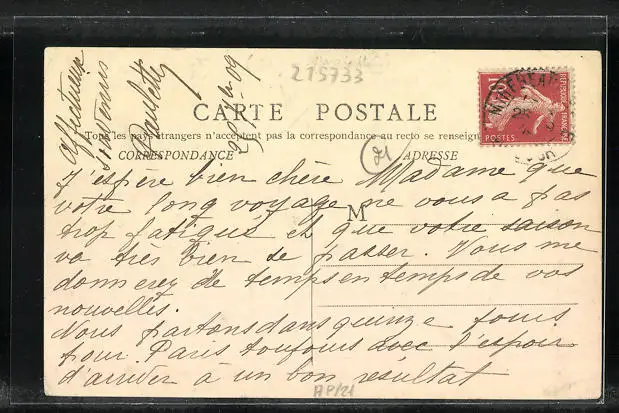 Affectueux
souvenirs
Paulette
215733
CARTE POSTALE
Tous les pays étrangers n'acceptent pas la correspondance au recto se renseigner
CORRESPONDANCE
21
ADRESSE
RÉPUBLIQUE FRANÇAISE
POSTES
10
J'espère bien chère Madame que
votre long voyage ne vous a pas
trop fatiguée et que votre saison
M
va très bien se passer. Vous me
donnerez de temps en temps de vos
nouvelles.
Nous partons dans quinze jours
pour Paris toujours avec l'espoir
d'arriver à un bon résultat
AP/21